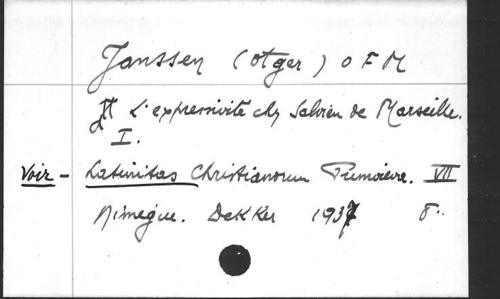 Janssen (Otger) O F M
L'expressivité chz Salvien de Marseille.
I.
Voir - Latinitas Christianorum Primaeva. VII
Nimegue. Dekker 1937 8°.